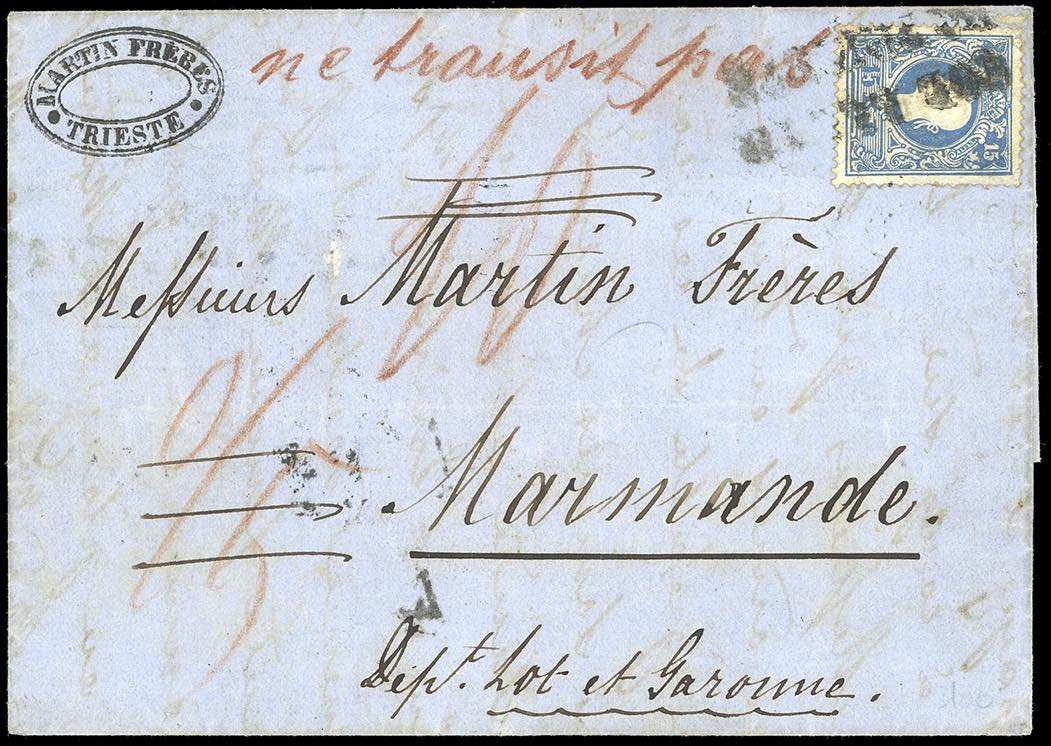 MARTIN FRÈRES
TRIESTE
ne transit pas
15
Messieurs Martin Frères
Marmande.
Dépt. Lot et Garonne.